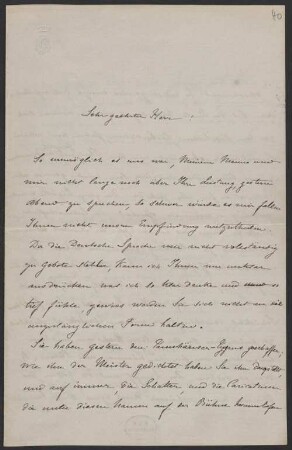 40
Sehr geehrter Herr
So unmöglich es uns war, Meinem Manne und
mir nicht lange noch über Ihre Leistung gestern
Abend zu sprechen, so schwer würde es mir fallen
Ihnen nicht unsere Empfindung mitzutheilen.
Da die deutsche Sprache mir nicht vollständig
zu Gebote steht, kann ich Ihnen nur
ausdrücken was ich so klar denke und so
tief fühle, gewiss werden Sie sich nicht an die
Form halten.
Sie haben gestern den Tannhäuser geschaffen,
wie ihn der Meister gedichtet haben
und auf immer, die Schatten und die Caricaturen
die unter diesem Namen auf der Bühne herumlaufen